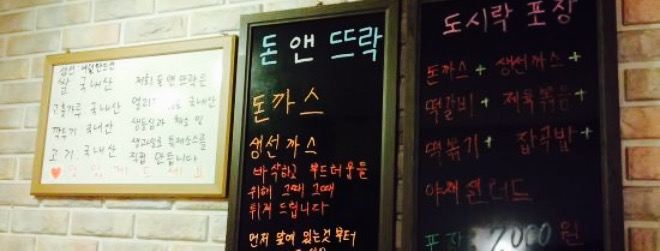 쌀 국내산
고춧가루 국내산
깍두기 국내산
고기 국내산
저희 돈앤뜨락은
국내산
생등심과 채소 및
생과일로 특제소스를
직접 만듭니다
♥ 맛있게 드세요
돈앤뜨락
돈까스
생선까스
바삭하고 부드러움을
위해 그때그때
튀겨 드립니다
먼저 앞에 있는것부터
도시락 포장
돈까스+ 생선까스+
떡갈비+ 제육볶음+
떡볶기+ 잡곡밥+
야채샐러드
포장 7000원